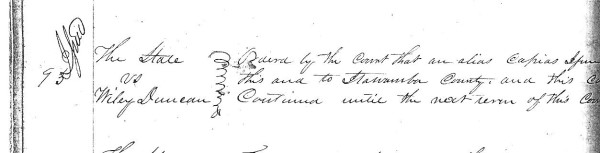 The State
vs
Wiley Duncan
Ordered by the Court that an alias capias
this and to Itawamba County. and this
Continued until the next term of this